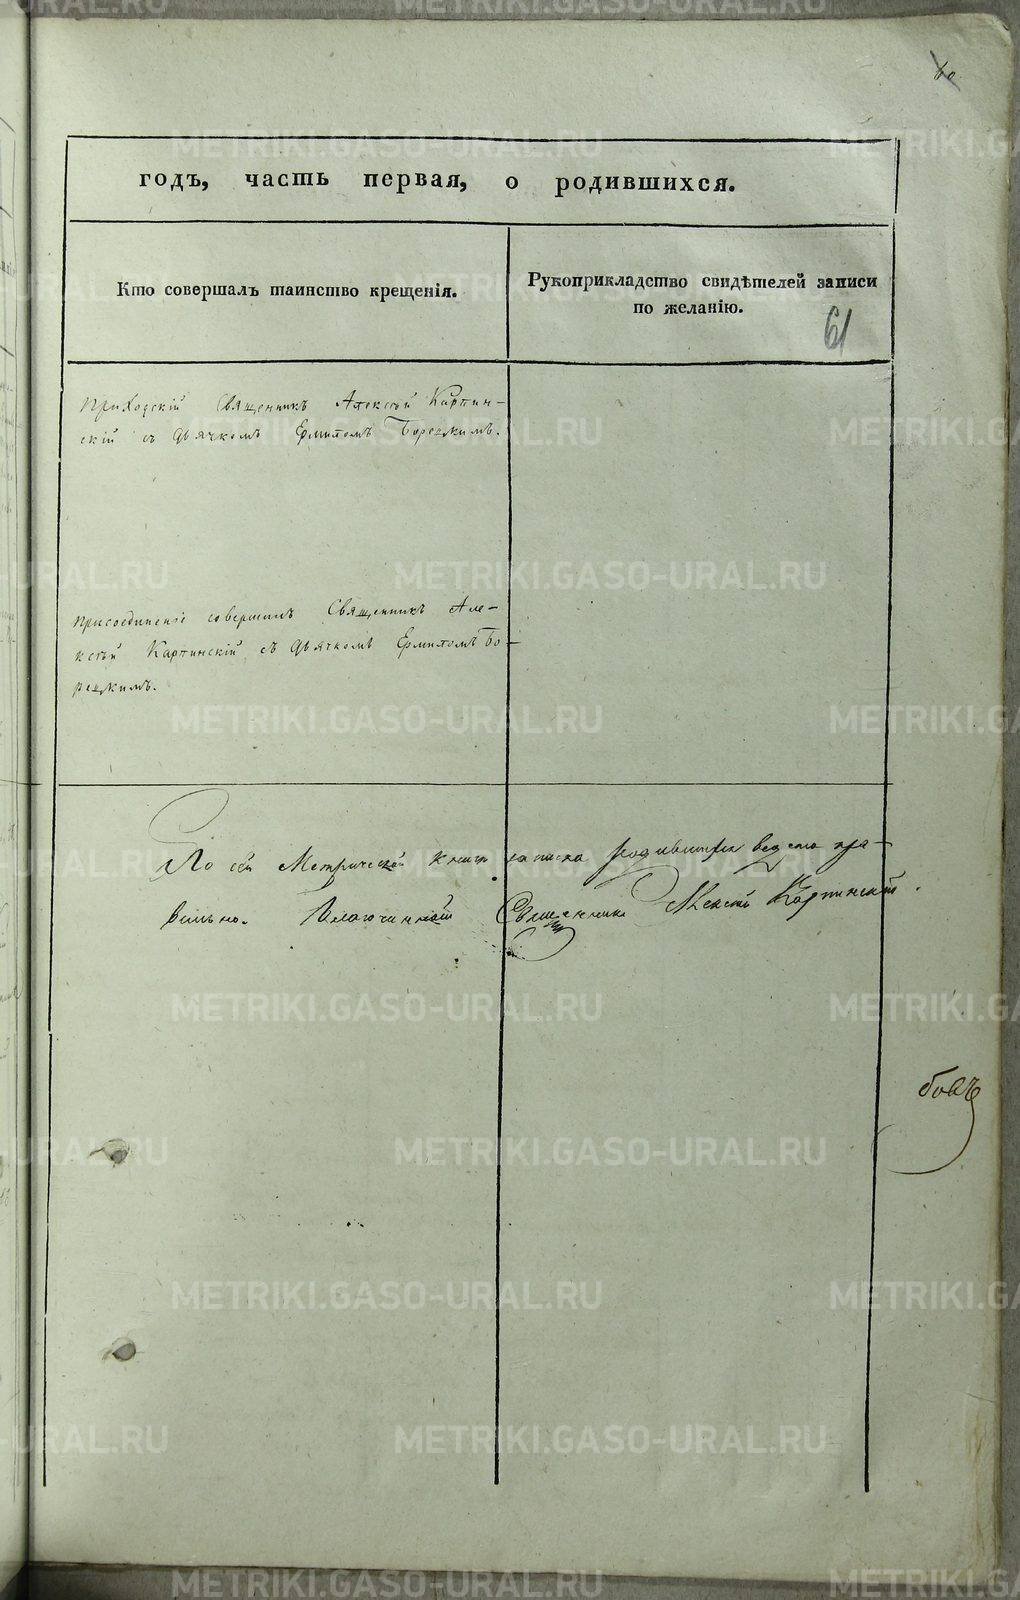 60
годъ, часть первая, о родившихся.
Кто совершалъ таинство крещенія.
Рукоприкладство свидѣтелей записи
по желанію.
61
Приходскій Священникъ Алексѣй Карпин-
скій съ дьячкомъ Ермиломъ Борецкимъ.
Присоединеніе совершилъ Священникъ Але-
ксѣй Карпинскій съ дьячкомъ Ермиломъ Бо-
рецкимъ.
По сей Метрической книгѣ записка родившихся ведена пра-
вильно. Благочинный Священникъ Алексѣй Карпинскій.
бовъ
METRIKI.GASO-URAL.RU